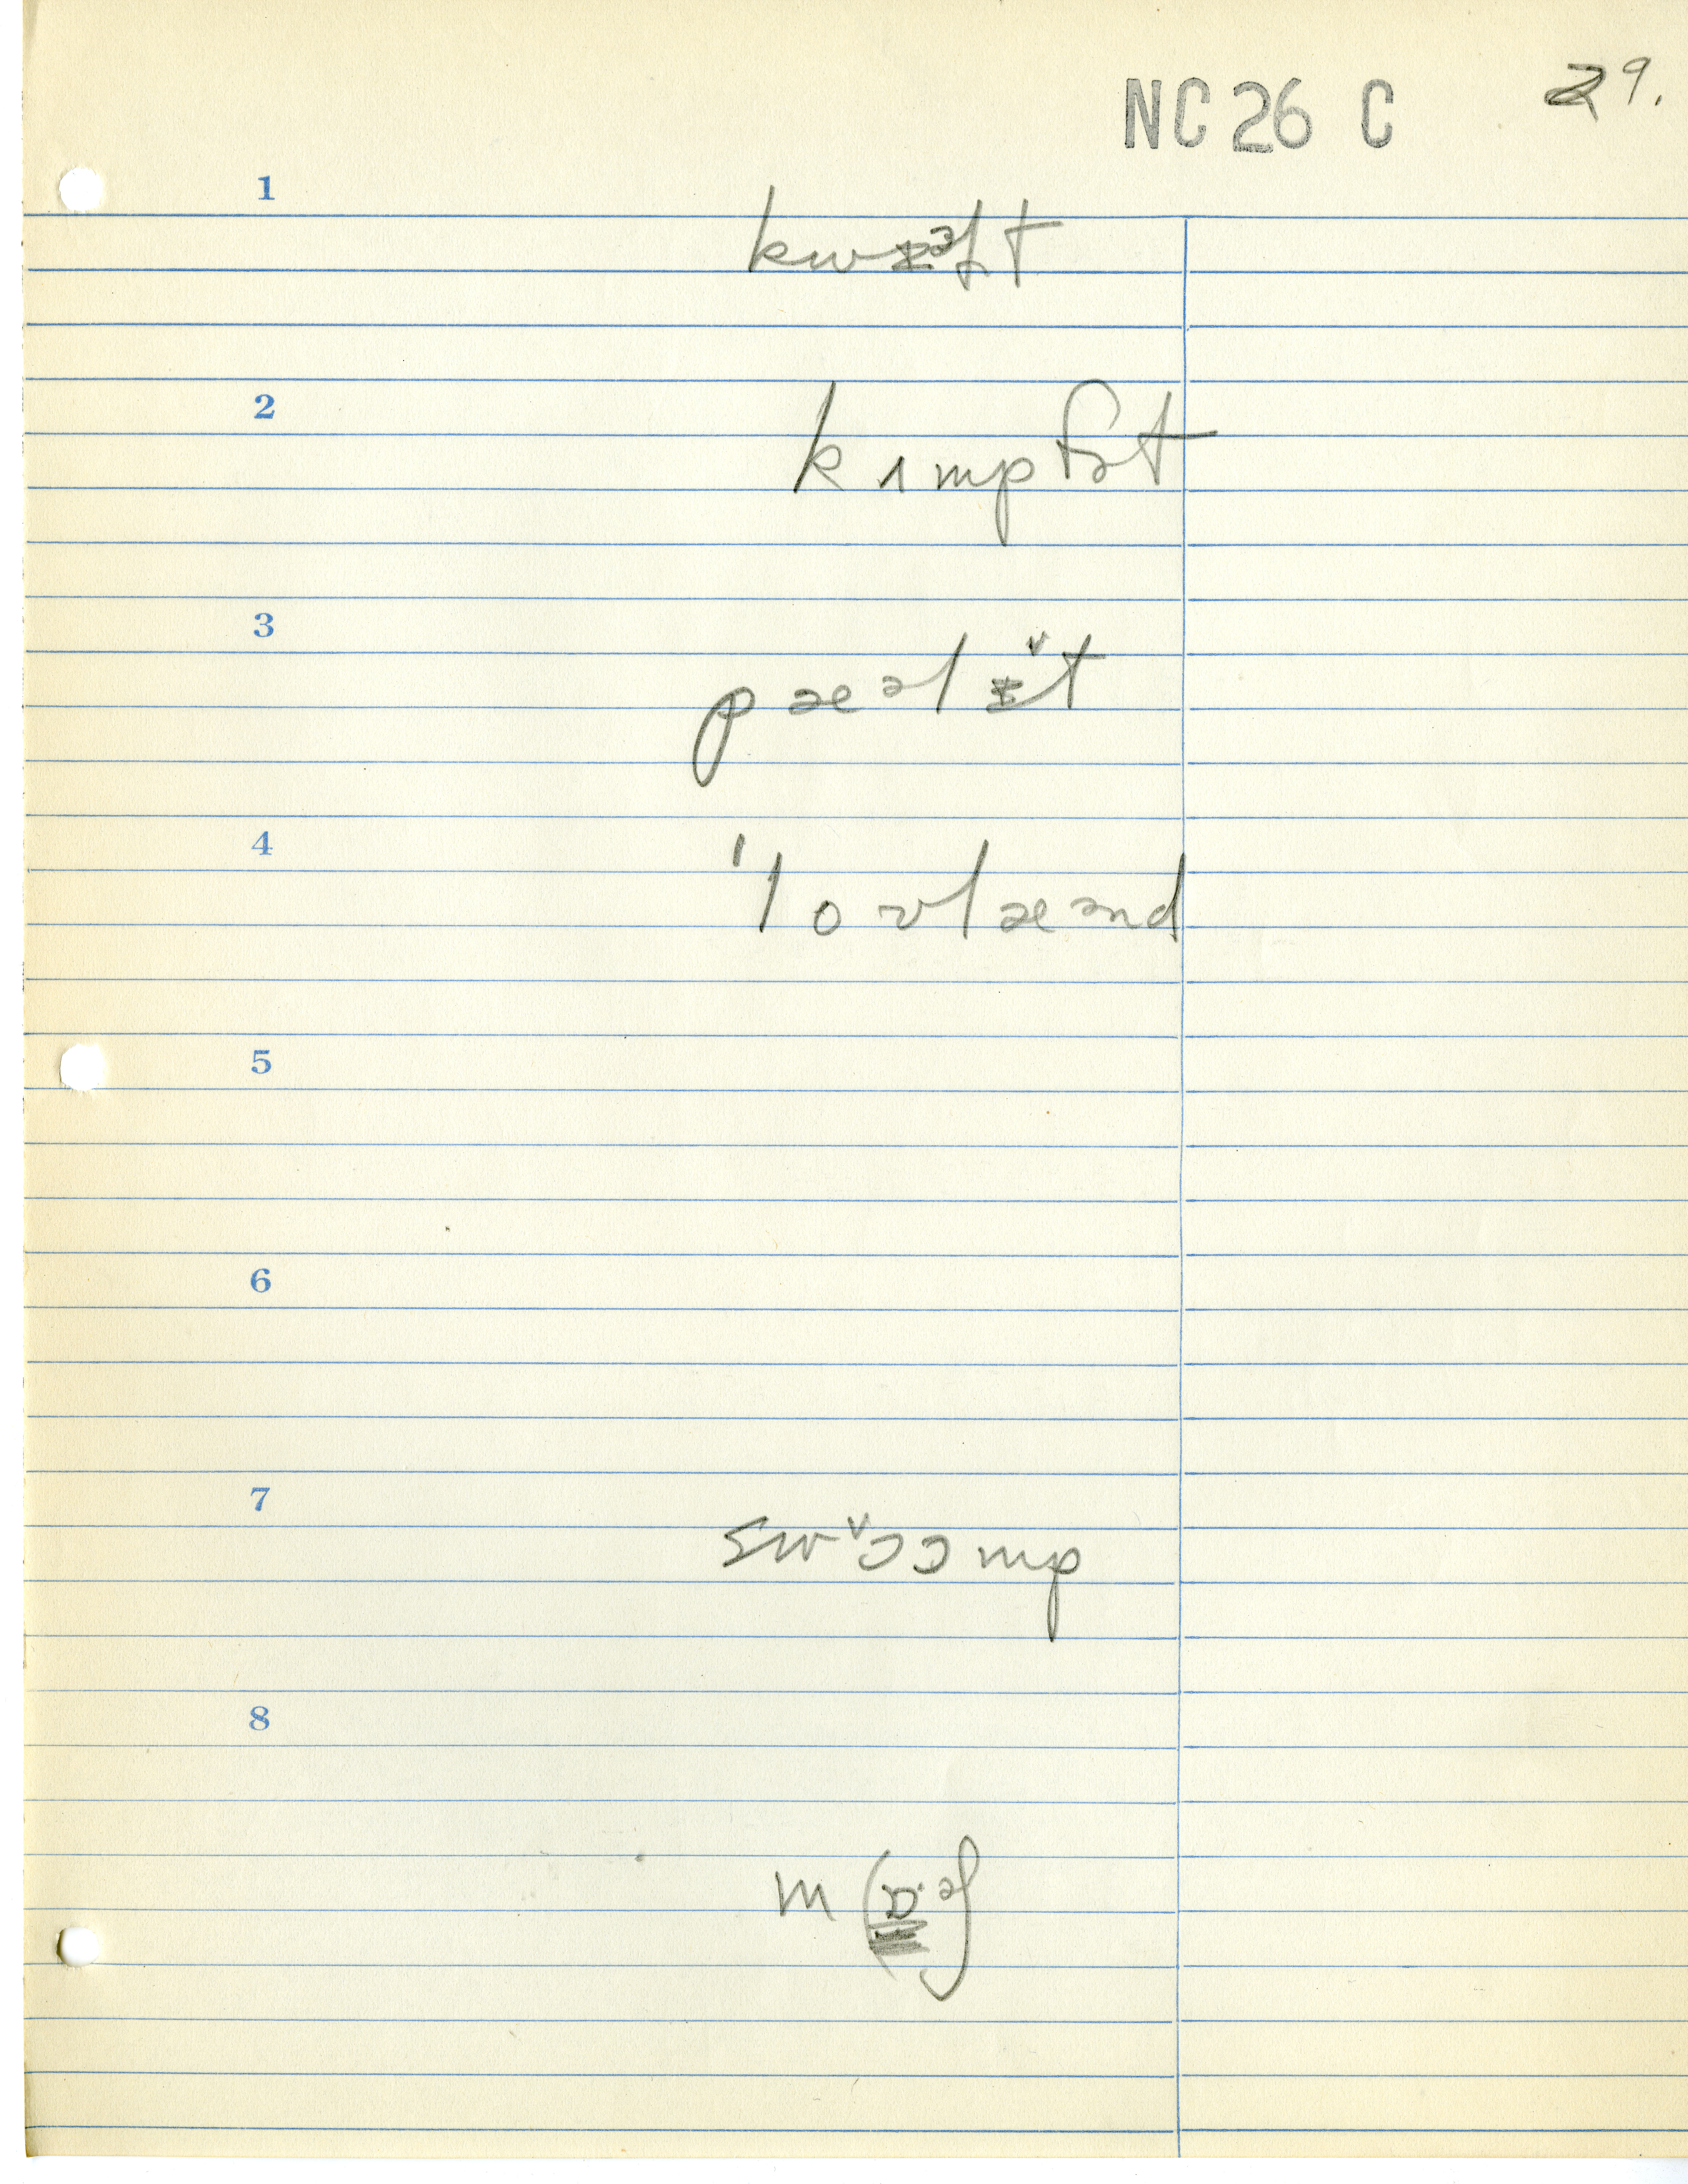 NC 26 C 29.
1
kwɪᵊɫt
2
kʌmpfɚt
3
pæəlɪ̌t
4
'lovlæənd
5
6
7
swɔ̌ɔmp
8
mɑ.ᵊʃ